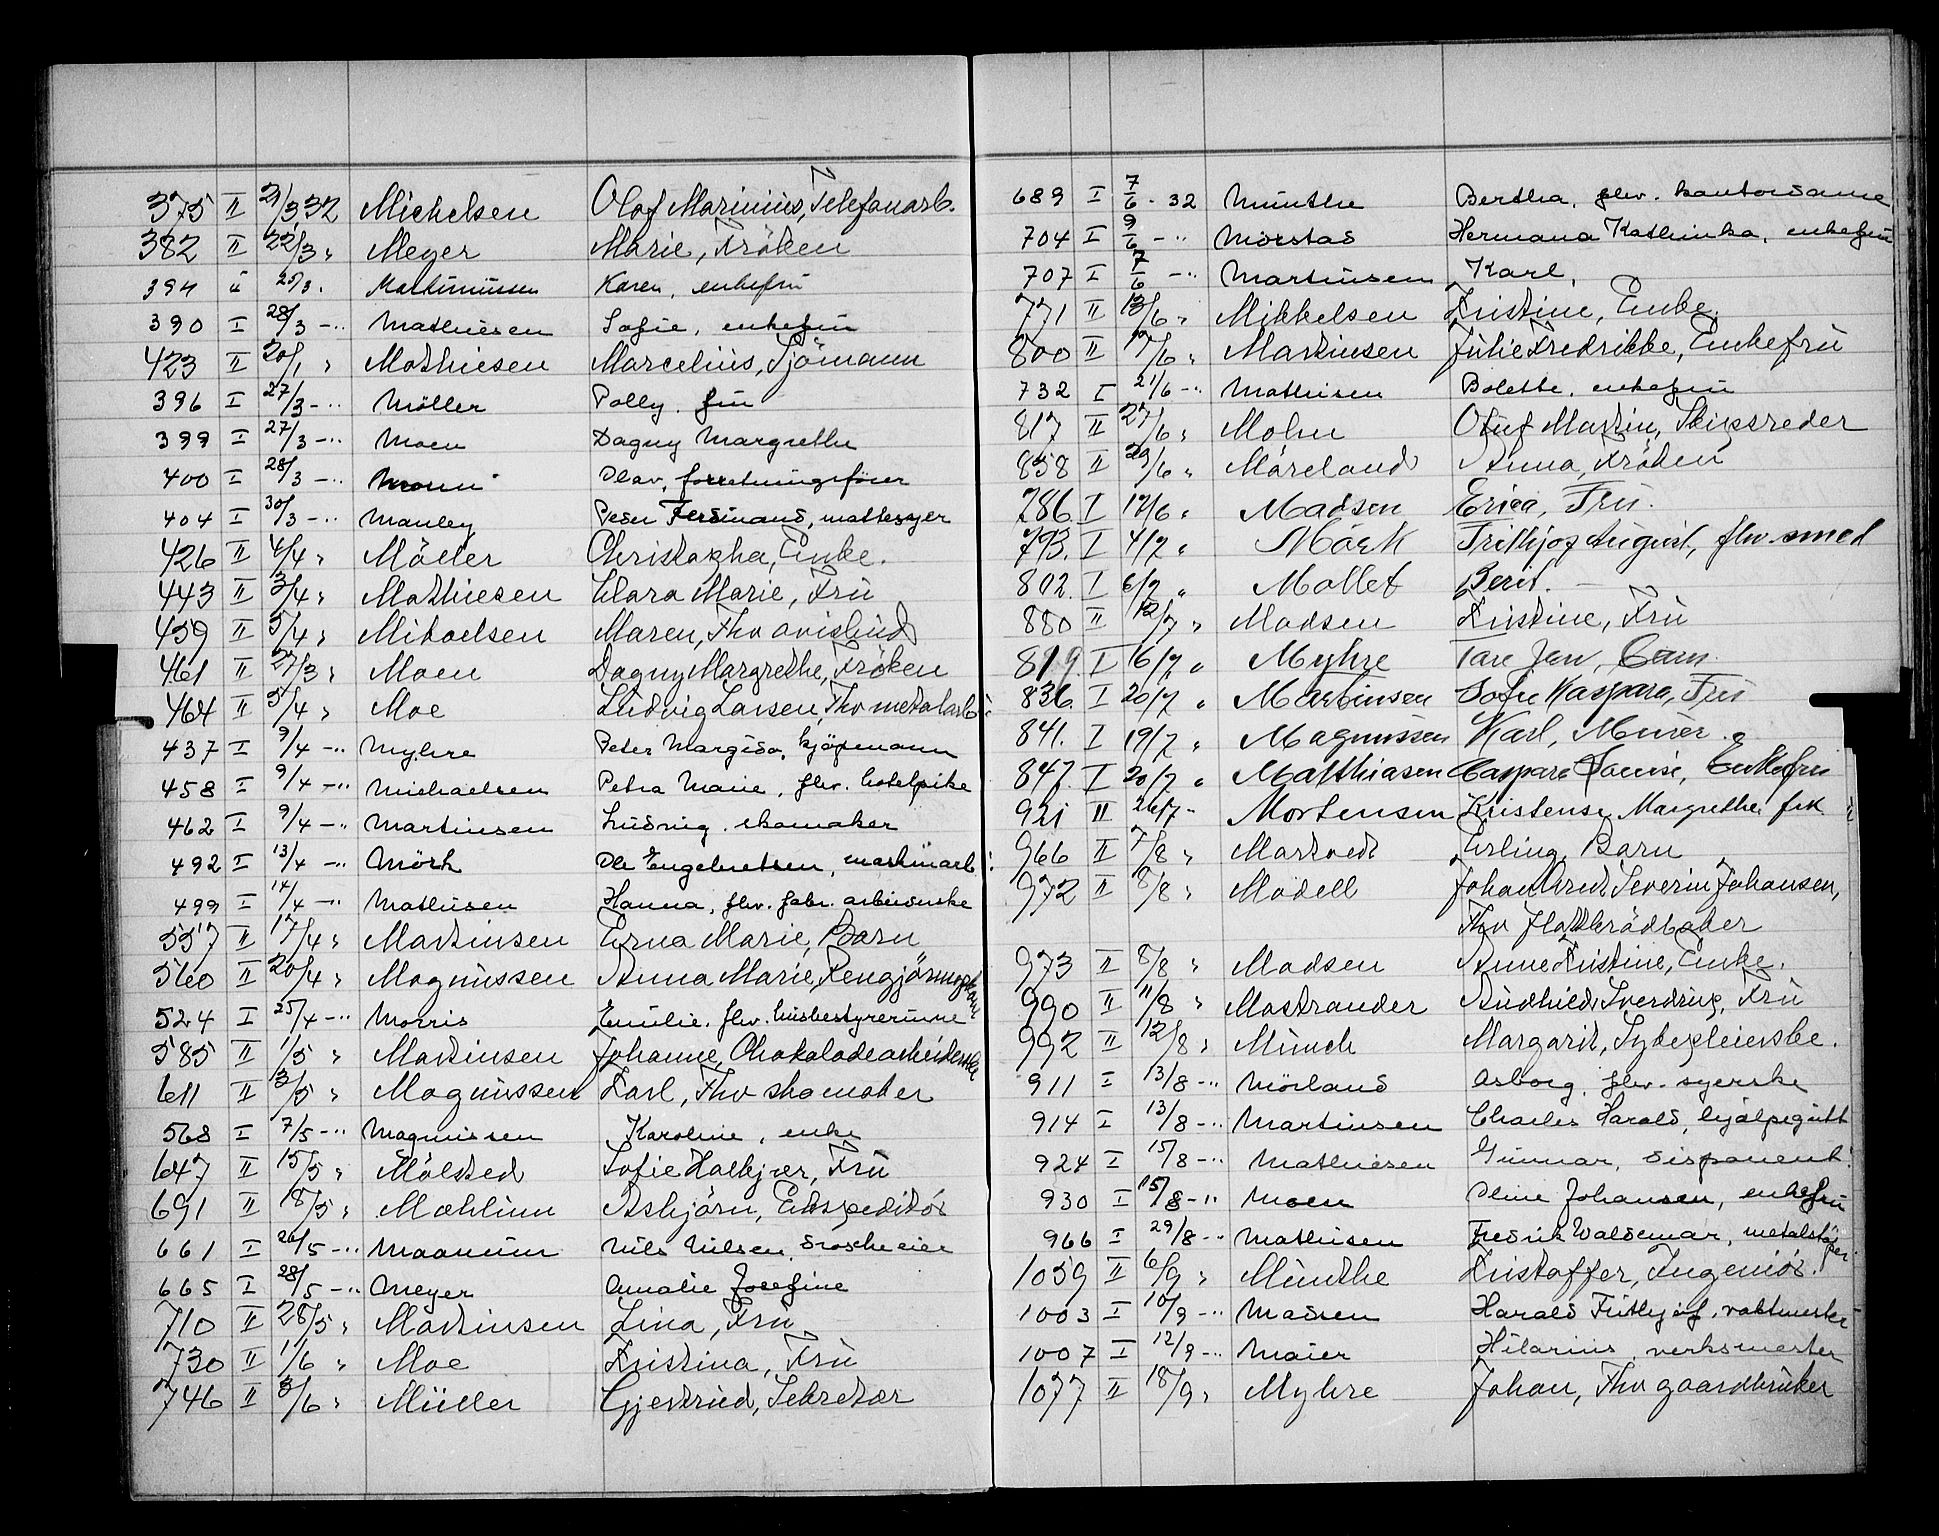 375 II 21/3 32 Michelsen Olaf Marinius, Telefonarb.
382 II 22/3 " Meyer Marie, Fröken
394 " 25/3 " Martiniussen Karen, enkefru
390 I 28/3 -" Mathiesen Sofie, enkefru
423 II 20/1 " Mathiesen Marcelius, Sjömann
396 I 27/3 -" Möller Polly, fru
399 I 27/3 -" Moen Dagny Margrethe
400 I 28/3 -" Olav, forretningsförer
404 I 30/3 -" Manley Peder Ferdinand, mattesyer
426 II 4/4 " Möller Christopha, Enke.
443 II 3/4 " Mathiesen Clara Marie, Fru
459 II 5/4 " Mikaelsen Maren, Fhv avisbud
461 II 27/3 " Moen Dagny Margrethe, Fröken
464 II 5/4 " Moe Ludvig Larsen, Fhv metalarb.
437 I 9/4 -" Myhre Peter Margido, kjöpmann
458 I 9/4 -" Michaelsen Petra Marie, fhv. hotelpike
462 I 9/4 -" Martinsen Ludvig, skomaker
492 I 13/4 -" Mörk Ole Engebretsen, maskinarb.
499 I 14/4 -" Mathisen Hanna, fhv. fabr. arbeiderske
557 II 17/4 " Martinsen Erna Marie, Barn
560 II 20/4 " Magnussen Anna Marie, Rengjöringskone
524 I 25/4 -" Morris Emilie, fhv. husbestyrerinne
585 II 1/5 " Martinsen Johanne, Chokoladearbeiderske
611 II 3/5 " Magnussen Karl, Fhv skomaker
568 I 7/5 -" Magnussen Karoline, enke
647 II 15/5 " Mölsted Sofie Halkjær, Fru
691 II 18/5 " Mæhlum Asbjörn, Ekspeditör
661 I 26/5 -" Maanum Nils Nilsen, droscheeier
665 I 28/5 -" Meyer Amalie Josefine
710 II 28/5 " Martinsen Lina, Fru
730 II 1/6 " Moe Kristina, Fru
746 II 3/6 " Müller Gjertrud, Sekretær
689 I 7/6 - 32 Munthe Bertha, fhv. kontordame
704 I 9/6 -" Mörstad Hermana Kathinka, enkefru
707 I 7/6 -" Martinsen Karl,
771 II 13/6 " Mikkelsen Kristine, Enke.
800 II 17/6 " Martinsen Julie Fredrikke, Enkefru
732 I 21/6 -" Mathisen Bolette, enkefru
817 II 27/6 " Mohn Oluf Martin, Skipsreder
858 II 29/6 " Möreland Anna, Fröken
786 I 12/6 " Madsen Erica, Fru.
793. I 4/7 " Mörk Frithjof August, fhv. smed
802. I 6/7 " Mollet Berit. -
880 II 12/7 " Madsen Kristine, Fru
819. I 16/7 " Myhre Tore Jan, Barn.
836. I 20/7 " Martinsen Sofie Kaspara, Fru
841. I 19/7 " Magnussen Karl, Murer.
847. I 20/7 " Matthiasen Caspara Lovise, Enkefru
921 II 24/7 - Mortensen Kristense Margrethe frk
966 II 7/8 " Martvedt Erling, Barn
972 II 8/8 " Modell Johan Arent Severin Johansen,
Fhv flatbrödbaker
973 II 8/8 " Madsen Anne Kristine, Enke.
990 II 11/8 " Mostrander Audhild Sverdrup, Fru
992 II 12/8 " Münch Margarit, Sykepleierske.
911 I 13/8 -" Mörland Asborg, fhv. syerske
914 I 13/8 -" Martinsen Charles Harald, hjelpegutt
924 I 15/8 -" Mathiesen Gunnar, disponent.
930 I 15/8 -" Moen Oline Johansen, enkefru
966 I 29/8 -" Mathisen Fredrik Waldemar, metalstöper
1059 II 6/9 " Munthe Kristoffer, Ingeniör.
1003 I 10/9 -" Madsen Harald Frithjof, vaktmester
1007 I 12/9 -" Maier Hilarius, verksmester
1077 II 18/9 " Myhre Johan, Fhv gaardbruker